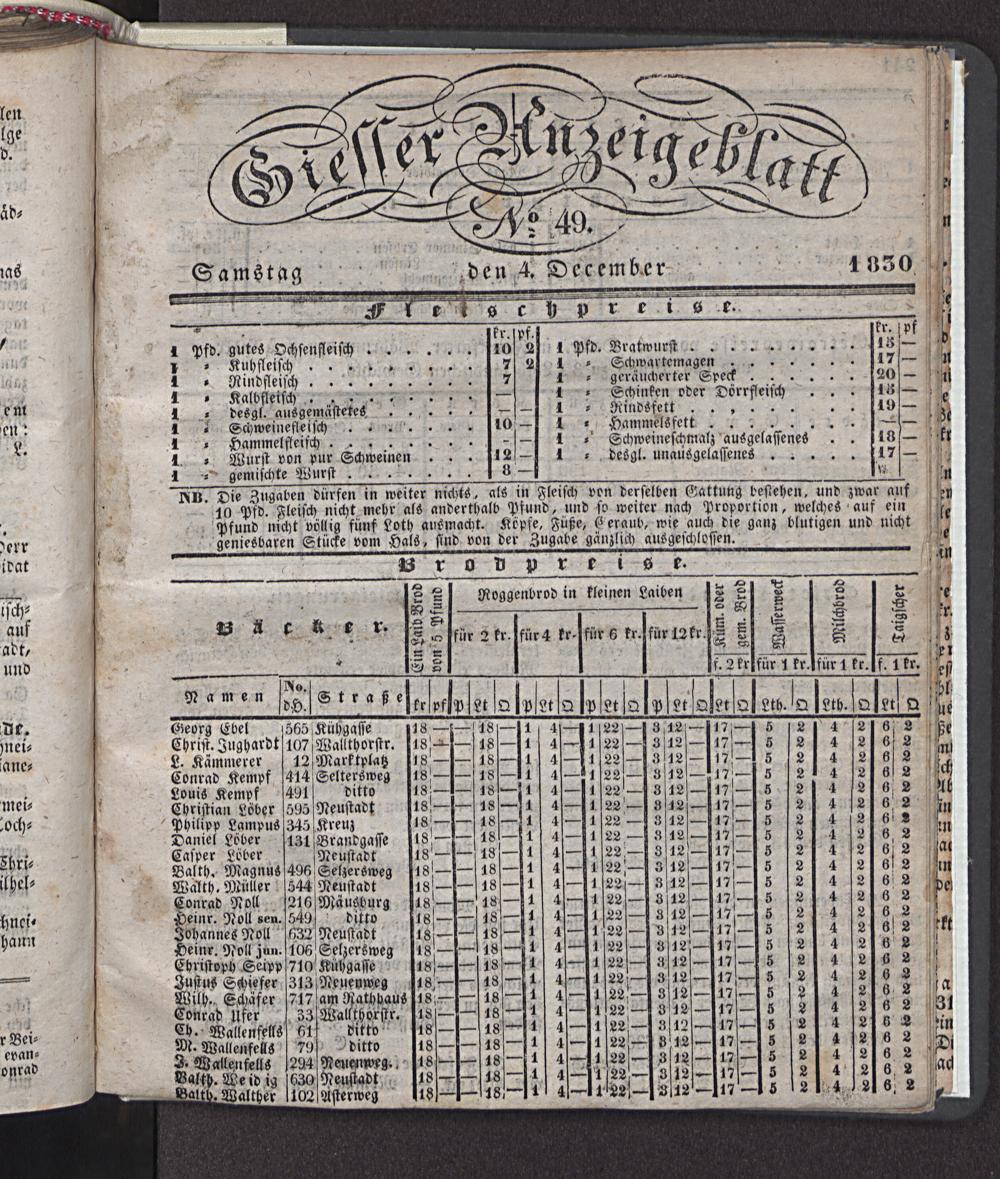 Giesser Anzeigeblatt
No. 49.
Samstag den 4. December 1830
Fleischpreise.
kr. pf.
1 Pfd. gutes Ochsenfleisch . . . . . 10 2
1 „ Kuhfleisch . . . . . . . 7 2
1 „ Rindfleisch . . . . . . . 7
1 „ Kalbfleisch . . . . . . . —
1 „ desgl. ausgemästetes . . . . . — —
1 „ Schweinefleisch . . . . . . 10 —
1 „ Hammelfleisch . . . . . . - -
1 „ Wurst von pur Schweinen . . . 12 —
1 „ gemischte Wurst . . . . . . 8 —
kr. pf
1 Pfd. Bratwurst . . . . . . . 15 —
1 „ Schwartemagen . . . . . . 17 —
1 „ geräucherter Speck . . . . . 20 —
1 „ Schinken oder Dörrfleisch . . . . 15 —
1 „ Rindsfett . . , . . . . 19 —
1 „ Hammelsfett . . . . . . . — —
1 „ Schweineschmalz ausgelassenes . . . 18 —
1 „ desgl. unausgelassenes . . . . . 17 —
NB. Die Zugaben dürfen in weiter nichts, als in Fleisch von derselben Gattung bestehen, und zwar auf
10 Pfd. Fleisch nicht mehr als anderthalb Pfund, und so weiter nach Proportion, welches auf ein
Pfund nicht völlig fünf Loth ausmacht. Köpfe, Füße, Geraub, wie auch die ganz blutigen und nicht
geniesbaren Stücke vom Hals, sind von der Zugabe gänzlich ausgeschlossen.
Brodpreise.
Bäcker. Ein Laib Brod von 5 Pfund Roggenbrod in kleinen Laiben Küm. oder gem. Brod Wasserweck Milchbrod Taigscher
für 2 kr. für 4 kr. für 6 kr. für 12 kr. f. 2 kr für 1 kr. für 1 kr. f. 1 kr.
Namen No. d.H. Straße kr pf P Lt Q P Lt Q P Lt Q P Lt Q Lt Q Lth. Q Lth. Q Lt Q
Georg Ebel 565 Kühgasse 18 — — 18 — 1 4 — 1 22 — 3 12 — 17 — 5 2 4 2 6 2
Christ. Jughardt 107 Wallthorstr. 18 — — 18 — 1 4 — 1 22 — 3 12 — 17 — 5 2 4 2 6 2
L. Kämmerer 12 Marktplatz 18 — — 18 — 1 4 — 1 22 — 3 12 — 17 — 5 2 4 2 6 2
Conrad Kempf 414 Seltersweg 18 — — 18 — 1 4 — 1 22 — 3 12 — 17 — 5 2 4 2 6 2
Louis Kempf 491 ditto 18 — — 18 — 1 4 — 1 22 — 3 12 — 17 — 5 2 4 2 6 2
Christian Löber 595 Neustadt 18 — — 18 — 1 4 — 1 22 — 3 12 — 17 — 5 2 4 2 6 2
Philipp Lampus 345 Kreuz 18 — — 18 — 1 4 — 1 22 — 3 12 — 17 — 5 2 4 2 6 2
Daniel Löber 131 Brandgasse 18 — — 18 — 1 4 — 1 22 — 3 12 — 17 — 5 2 4 2 6 2
Casper Löber Neustadt 18 — — 18 — 1 4 — 1 22 — 3 12 — 17 — 5 2 4 2 6 2
Balth. Magnus 496 Selzersweg 18 — — 18 — 1 4 — 1 22 — 3 12 — 17 — 5 2 4 2 6 2
Walth. Müller 544 Neustadt 18 — — 18 — 1 4 — 1 22 — 3 12 — 17 — 5 2 4 2 6 2
Conrad Noll 216 Mäusburg 18 — — 18 — 1 4 — 1 22 — 3 12 — 17 — 5 2 4 2 6 2
Heinr. Noll sen. 549 ditto 18 — — 18 — 1 4 — 1 22 — 3 12 — 17 — 5 2 4 2 6 2
Johannes Noll 632 Neustadt 18 — — 18 — 1 4 — 1 22 — 3 12 — 17 — 5 2 4 2 6 2
Heinr. Noll jun. 106 Selzersweg 18 — — 18 — 1 4 — 1 22 — 3 12 — 17 — 5 2 4 2 6 2
Christoph Seipp 710 Kühgasse 18 — — 18 — 1 4 — 1 22 — 3 12 — 17 — 5 2 4 2 6 2
Justus Schiefer 313 Neuenweg 18 — — 18 — 1 4 — 1 22 — 3 12 — 17 — 5 2 4 2 6 2
Wilh. Schäfer 717 am Rathhaus 18 — — 18 — 1 4 — 1 22 — 3 12 — 17 — 5 2 4 2 6 2
Conrad Ufer 33 Wallthorstr. 18 — — 18 — 1 4 — 1 22 — 3 12 — 17 — 5 2 4 2 6 2
Ch. Wallenfells 61 ditto 18 — — 18 — 1 4 — 1 22 — 3 12 — 17 — 5 2 4 2 6 2
M. Wallenfells 79 ditto 18 — — 18 — 1 4 — 1 22 — 3 12 — 17 — 5 2 4 2 6 2
J. Wallenfells 294 Neuenweg. 18 — — 18 — 1 4 — 1 22 — 3 12 — 17 — 5 2 4 2 6 2
Balth. Weidig 630 Neustadt 18 — — 18 — 1 4 — 1 22 — 3 12 — 17 — 5 2 4 2 6 2
Balth. Walther 102 Asterweg 18 — — 18 — 1 4 — 1 22 — 3 12 — 17 — 5 2 4 2 6 2